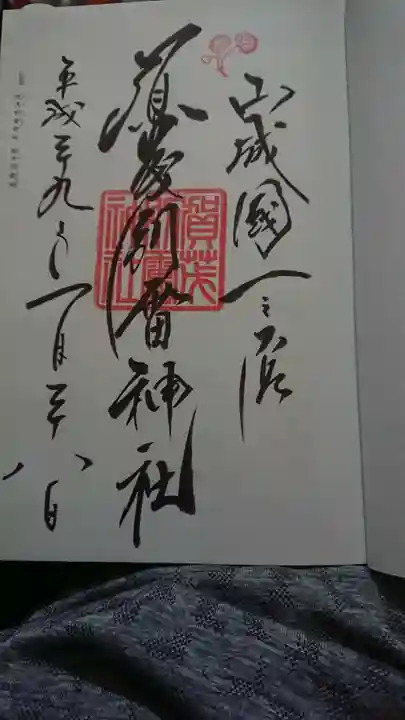 山城國一之宮
賀茂別雷神社
賀茂
別雷
神社
平成二十九年一月二十八日